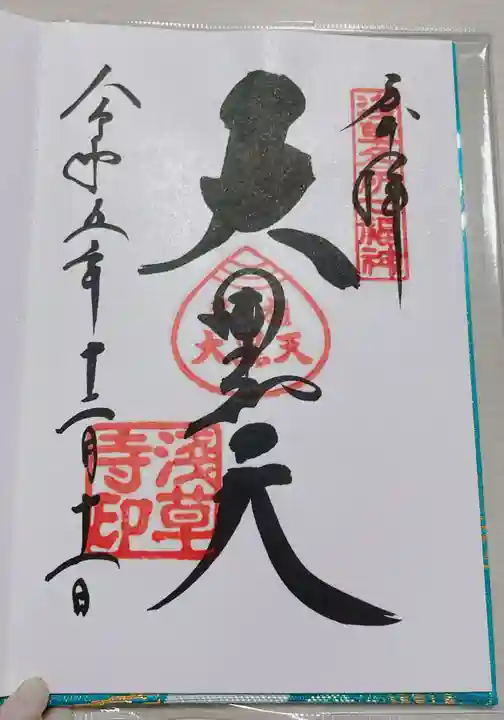 奉拝
浅草名所七福神
大黒天
浅草寺印
令和五年十二月十二日